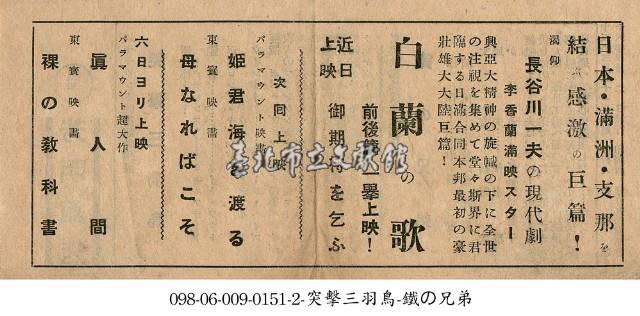 日本・滿洲・支那を
結ぶ感激の巨篇！
渴仰
長谷川一夫の現代劇
李香蘭滿映スター
興亞大精神の旋幟の下に全世
の注視を集めて堂々斯界に君
臨する日滿合同本邦最初の豪
壯雄大大陸巨篇！
白蘭の歌
前後篇一擧上映！
近日上映
御期待を乞ふ
次回上映
パラマウント映畵
姬君海を渡る
東寶映畵
母なればこそ
六日ヨリ上映
パラマウント超大作
眞人間
東寶映畵
裸の敎科書
臺北市立文獻館
098-06-009-0151-2-突擊三羽鳥-鐵の兄弟